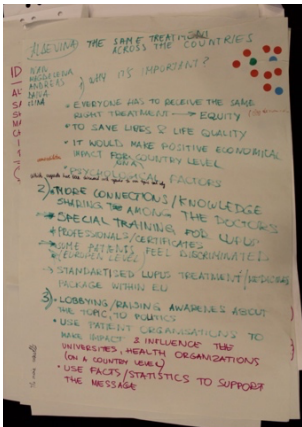 THE SAME TREATMENT
ACROSS THE COUNTRIES
IVAN
MAGDALENA
ANDREAS
WHY IT'S IMPORTANT?
• EVERYONE HAS TO RECEIVE THE SAME
RIGHT TREATMENT → EQUITY
• TO SAVE LIVES & LIFE QUALITY
• IT WOULD MAKE POSITIVE ECONOMICAL
IMPACT FOR COUNTRY LEVEL
• PSYCHOLOGICAL FACTORS
2) • MORE CONNECTIONS/KNOWLEDGE
SHARING AMONG THE DOCTORS
SPECIAL TRAINING FOR LUPUS
PROFESSIONALS/CERTIFICATES
SOME PATIENTS FEEL DISCRIMINATED
(EUROPEAN LEVEL)
→ STANDARTISED LUPUS TREATMENT/
PACKAGE WITHIN EU
3) • LOBBYING/RAISING AWARENESS ABOUT
THE TOPIC, TO POLITICS
• USE PATIENT ORGANISATIONS TO
MAKE IMPACT & INFLUENCE THE
UNIVERSITIES, HEALTH ORGANIZATIONS
(ON A COUNTRY LEVEL)
• USE FACTS/STATISTICS TO SUPPORT
THE MESSAGE